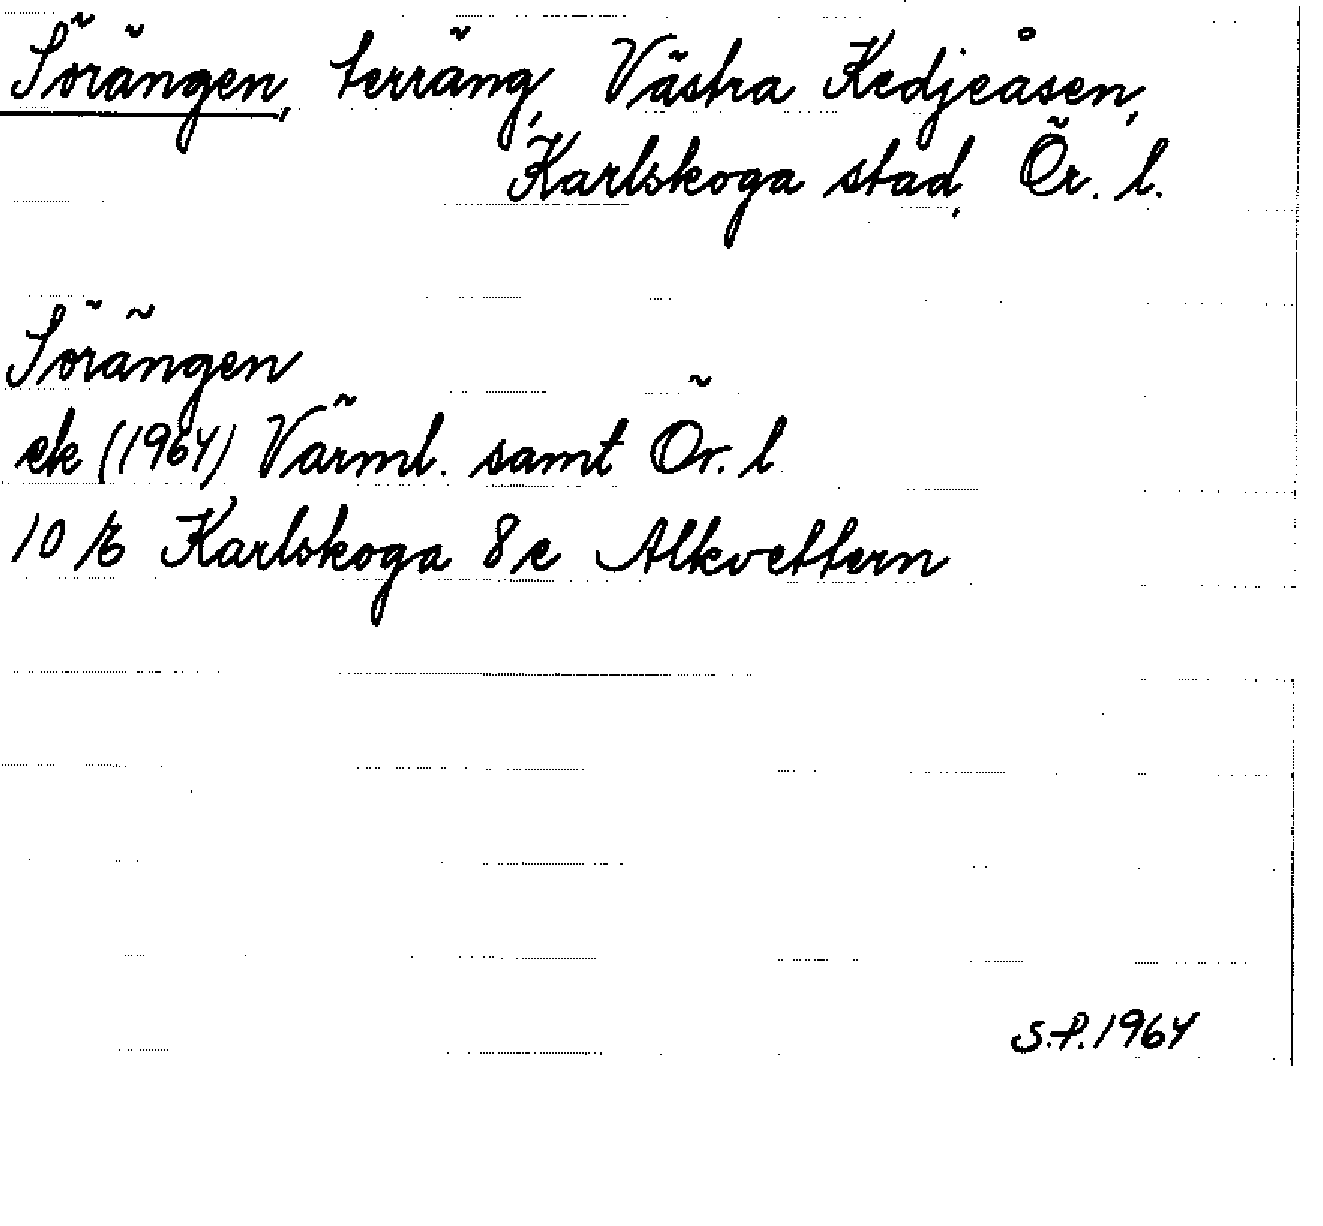 Sörängen, terräng, Västra Kedjeåsen,
Karlskoga stad, Ör. l.
Sörängen
ek (1964) Värml. samt Ör. l
10 E Karlskoga 8e Alkvettern
S.P. 1964